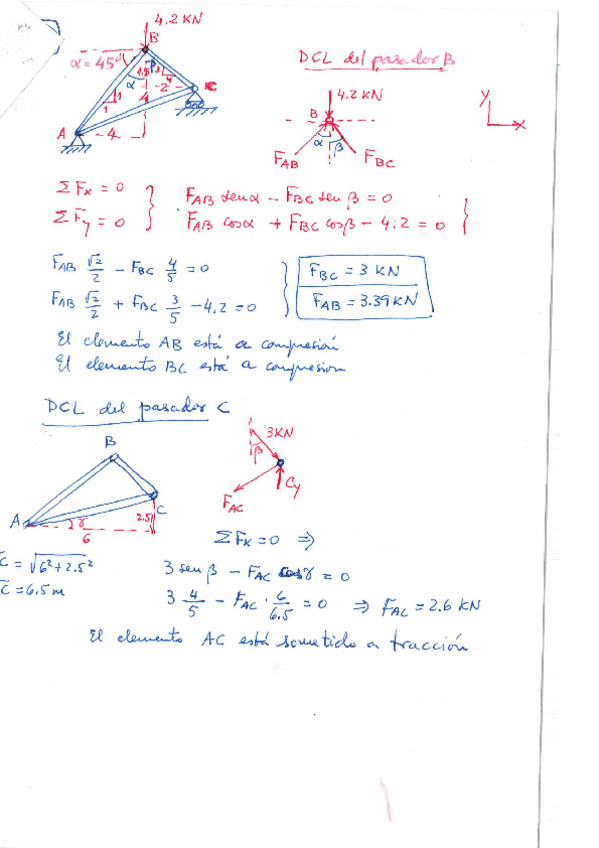 4.2 KN
B
α = 45°
β
α
1.5
3
4
2
C
4
1
1
A
4
DCL del pasador B
4.2 KN
B
y
x
α
β
F_AB
F_BC
ΣFx = 0 } F_AB senα − F_BC sen β = 0
ΣFy = 0 } F_AB cosα + F_BC cosβ − 4.2 = 0 }
F_AB √2/2 − F_BC 4/5 = 0 } F_BC = 3 KN
F_AB √2/2 + F_BC 3/5 − 4.2 = 0 } F_AB = 3.39 KN
El elemento AB está a compresión
El elemento BC está a compresion
DCL del pasador C
B
A
C
γ
2.5
6
3KN
β
F_AC
Cy
ΣFx = 0 ⇒
C = √6²+2.5² 3 sen β − F_AC cosγ = 0
C = 6.5 m 3 4/5 − F_AC · 6/6.5 = 0 ⇒ F_AC = 2.6 KN
El elemento AC está sometido a tracción